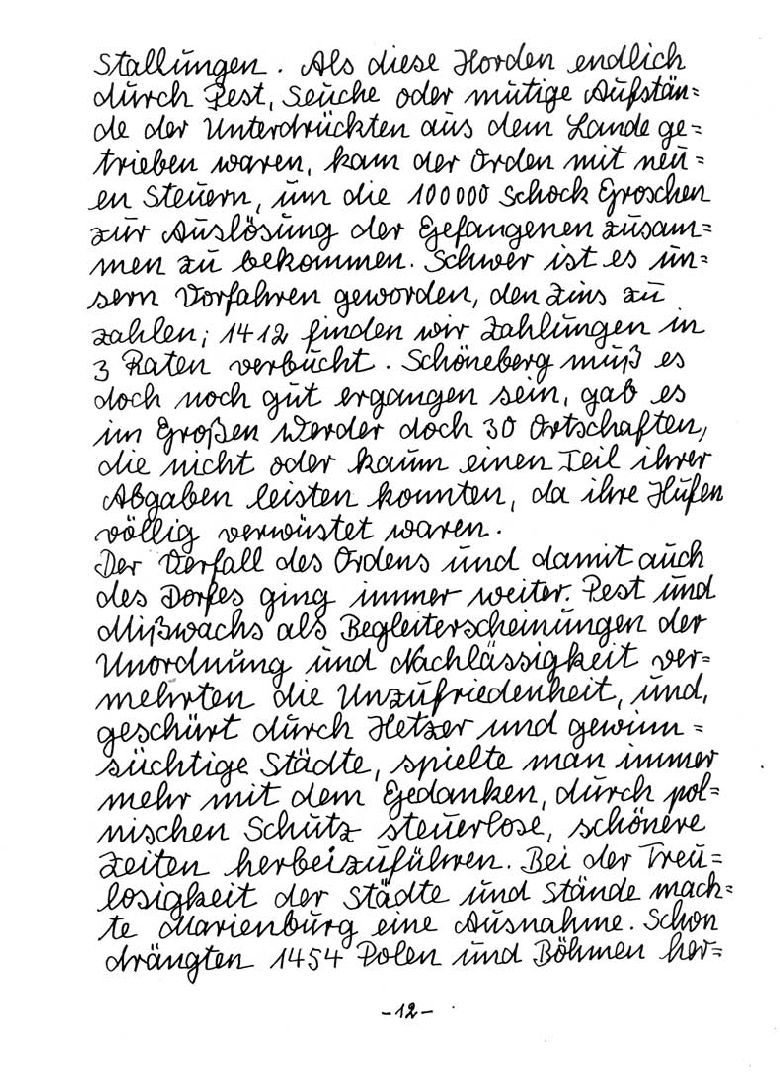 Stallungen. Als diese Horden endlich
durch Pest, Seuche oder mutige Aufstän=
de der Unterdrückten aus dem Lande ge=
trieben waren, kam der Orden mit neu=
en Steuern, um die 100000 Schock Groschen
zur Auslösung der Gefangenen zusam=
men zu bekommen. Schwer ist es un=
sern Vorfahren geworden, den Zins zu
zahlen; 1412 finden wir Zahlungen in
3 Raten verbucht. Schöneberg muß es
doch noch gut ergangen sein, gab es
im Großen Werder doch 30 Ortschaften,
die nicht oder kaum einen Teil ihrer
Abgaben leisten konnten, da ihre Hufen
völlig verwüstet waren.
Der Verfall des Ordens und damit auch
des Dorfes ging immer weiter. Pest und
Mißwachs als Begleiterscheinungen der
Unordnung und Nachlässigkeit ver=
mehrten die Unzufriedenheit, und,
geschürt durch Hetzer und gewinn=
süchtige Städte, spielte man immer
mehr mit dem Gedanken, durch pol=
nischen Schutz steuerlose, schönere
Zeiten herbeizuführen. Bei der Treu=
losigkeit der Städte und Stände mach=
te Marienburg eine Ausnahme. Schon
drängten 1454 Polen und Böhmen her=
-12-